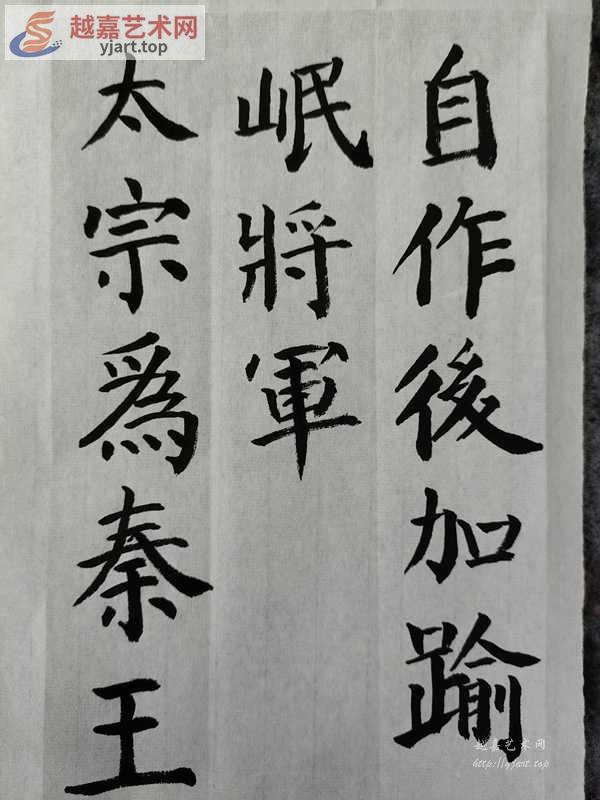 自作後加踰
岷將軍
太宗爲秦王
越嘉艺术网
yjart.top
越嘉艺术网
http://yjart.top